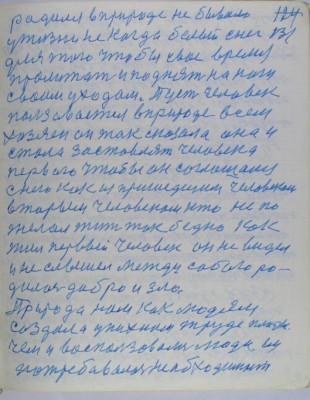 родился в природе не бывало 124
у жизни не когда белый снег из
для того чтобы свое время
промотат и поднят на ногу
своим уходом, Пуст человек
ползовается в природе всем
хозяен он так сказала она и
стала заставлят человека
первого чтобы он соглошался
с ним как и пришедшим человеком
вторым человеком кто не по
желал жит так бедно как
жил первый человек он не видел
и не слышел между собою ро-
дилося добро и зло.
Природа нам как людям
создала жизнь в труде
чем и воспользовались люди
употребавали необходимост